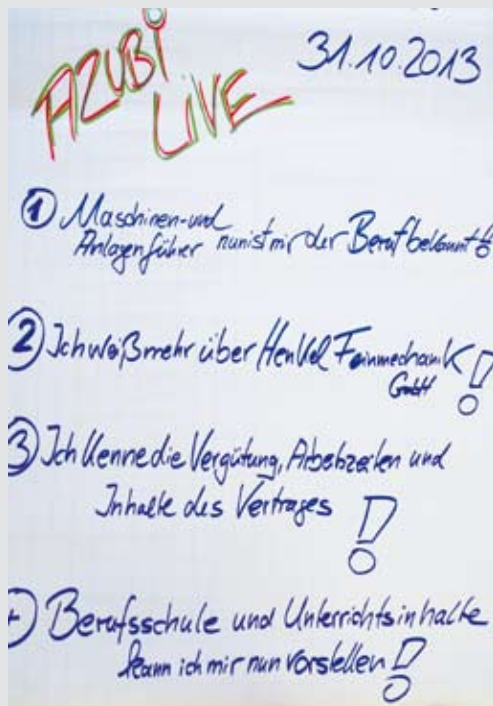 AZUBI
LIVE
31.10.2013
① Maschinen- und
Anlagenführer nun ist mir der Beruf bekannt!
② Ich weiß mehr über Henkel Feinmechanik
GmbH !
③ Ich kenne die Vergütung, Arbeitszeiten und
Inhalte des Vertrages !
Berufsschule und Unterrichtsinhalte
kann ich mir nun vorstellen !